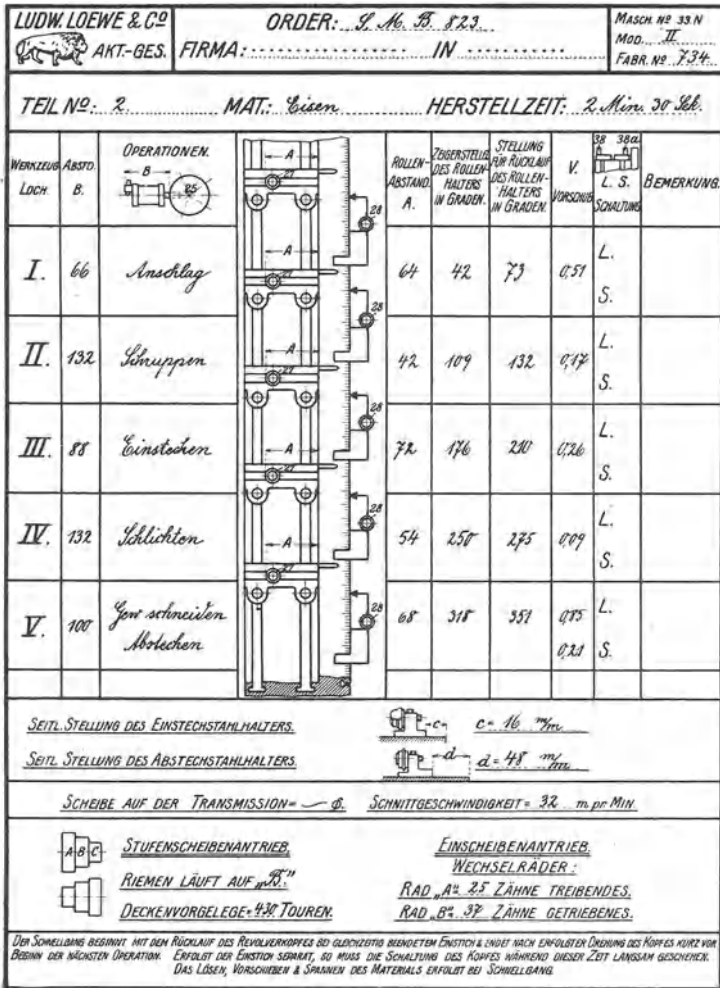 LUDW. LOEWE & Cº
AKT.-GES.
ORDER: S. M. B. 823
FIRMA: IN
MASCH. Nº 33 N
MOD. II
FABR. Nº 734
TEIL Nº: 2. MAT.: Eisen HERSTELLZEIT: 2 Min. 30 Sek.
WERKZEUG LOCH.
ABSTD. B.
OPERATIONEN.
B 25
ROLLEN-ABSTAND. A.
ZEIGERSTELLG. DES ROLLEN-HALTERS IN GRADEN.
STELLUNG FÜR RÜCKLAUF DES ROLLEN-HALTERS IN GRADEN.
V. VORSCHUB
38 38a
L. S. SCHALTUNG
BEMERKUNG.
A 27 28
I. 66 Anschlag A 27 28 64 42 73 0,51 L. S.
II. 132 Schruppen A 27 28 42 109 132 0,17 L. S.
III. 88 Einstechen A 27 28 72 176 210 0,26 L. S.
IV. 132 Schlichten A 27 28 54 250 275 0,09 L. S.
V. 100 Gew. schneiden 68 318 351 L.
Abstechen 0,21 S.
SEITL. STELLUNG DES EINSTECHSTAHLHALTERS. c c = 16 m/m
SEITL. STELLUNG DES ABSTECHSTAHLHALTERS. d d = 48 m/m
SCHEIBE AUF DER TRANSMISSION = — φ. SCHNITTGESCHWINDIGKEIT = 32 m. pr. MIN.
A B C
STUFENSCHEIBENANTRIEB.
RIEMEN LÄUFT AUF „B."
DECKENVORGELEGE = 430 TOUREN.
EINSCHEIBENANTRIEB.
WECHSELRÄDER:
RAD „A" = 25 ZÄHNE TREIBENDES.
RAD „B" = 37 ZÄHNE GETRIEBENES.
DER SCHNELLGANG BEGINNT MIT DEM RÜCKLAUF DES REVOLVERKOPFES BEI GLEICHZEITIG BEENDETEM EINSTICH & ENDET NACH ERFOLGTER DREHUNG DES KOPFES KURZ VOR
BEGINN DER NÄCHSTEN OPERATION. ERFOLGT DER EINSTICH SEPARAT, SO MUSS DIE SCHALTUNG DES KOPFES WÄHREND DIESER ZEIT LANGSAM GESCHEHEN.
DAS LÖSEN, VORSCHIEBEN & SPANNEN DES MATERIALS ERFOLGT BEI SCHNELLGANG.